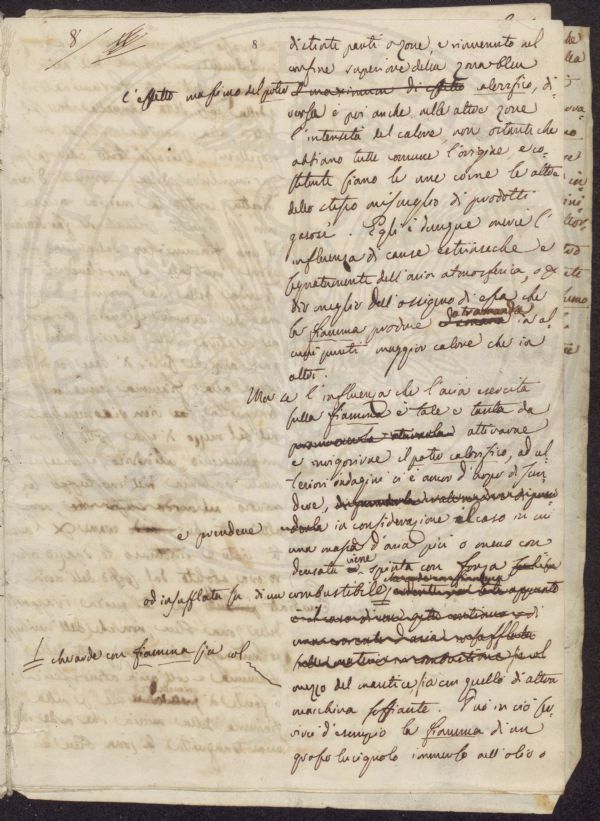 8
8
distinte parti o zone, e rinvenuto nel
confine superiore della zona bleu
l'effetto massimo del potere calorifico, di-
versa è poi anche nelle altre zone
l'intensità del calore non ostante che
abbiano tutte comune l'origine, e co-
stituite siano le une come le altre
dello stesso miscuglio di prodotti
gasosi. Egli è dunque mercè l'
influenza di cause estrinseche e
segnatamente dell'aria atmosferica, o per
dir meglio dell'ossigeno di essa che
la fiamma produce da tramanda in al-
cuni punti maggior calore che in
altri.
Ma se l'influenza che l'aria esercita
sulla fiamma è tale e tanta da
attivarne
e invigorirne il poter calorifico, ad ul-
teriori indagini ci è ancor d'uopo di scen-
dere,
e prendere in considerazione il caso in cui
una massa d'aria più o meno con
densata viene spinta con forza
od insufflata su di un combustibile
che arde con fiamma sia col
mezzo del mantice sia con quello di altra
macchina soffiante. Può in ciò ser-
virci d'esempio la fiamma di un
grosso lucignolo immerso nell'olio o